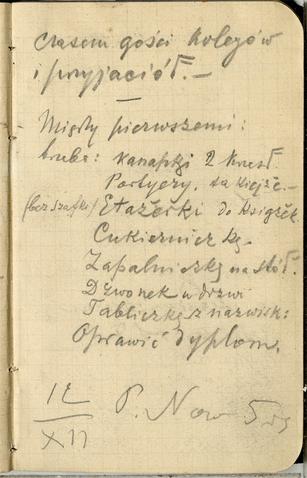 czasem gości kolegów
i przyjaciół. —
Między pierwszemi:
trzeba: Kanapki 2 krzesł.
Portyery,
(bez szafki) Etażerki do książek
Cukierniczkę.
Zapalniczkę na stół.
Dzwonek u drzwi
Tabliczkę z nazwisk:
Oprawić dyplom.
12
XII
P. Now